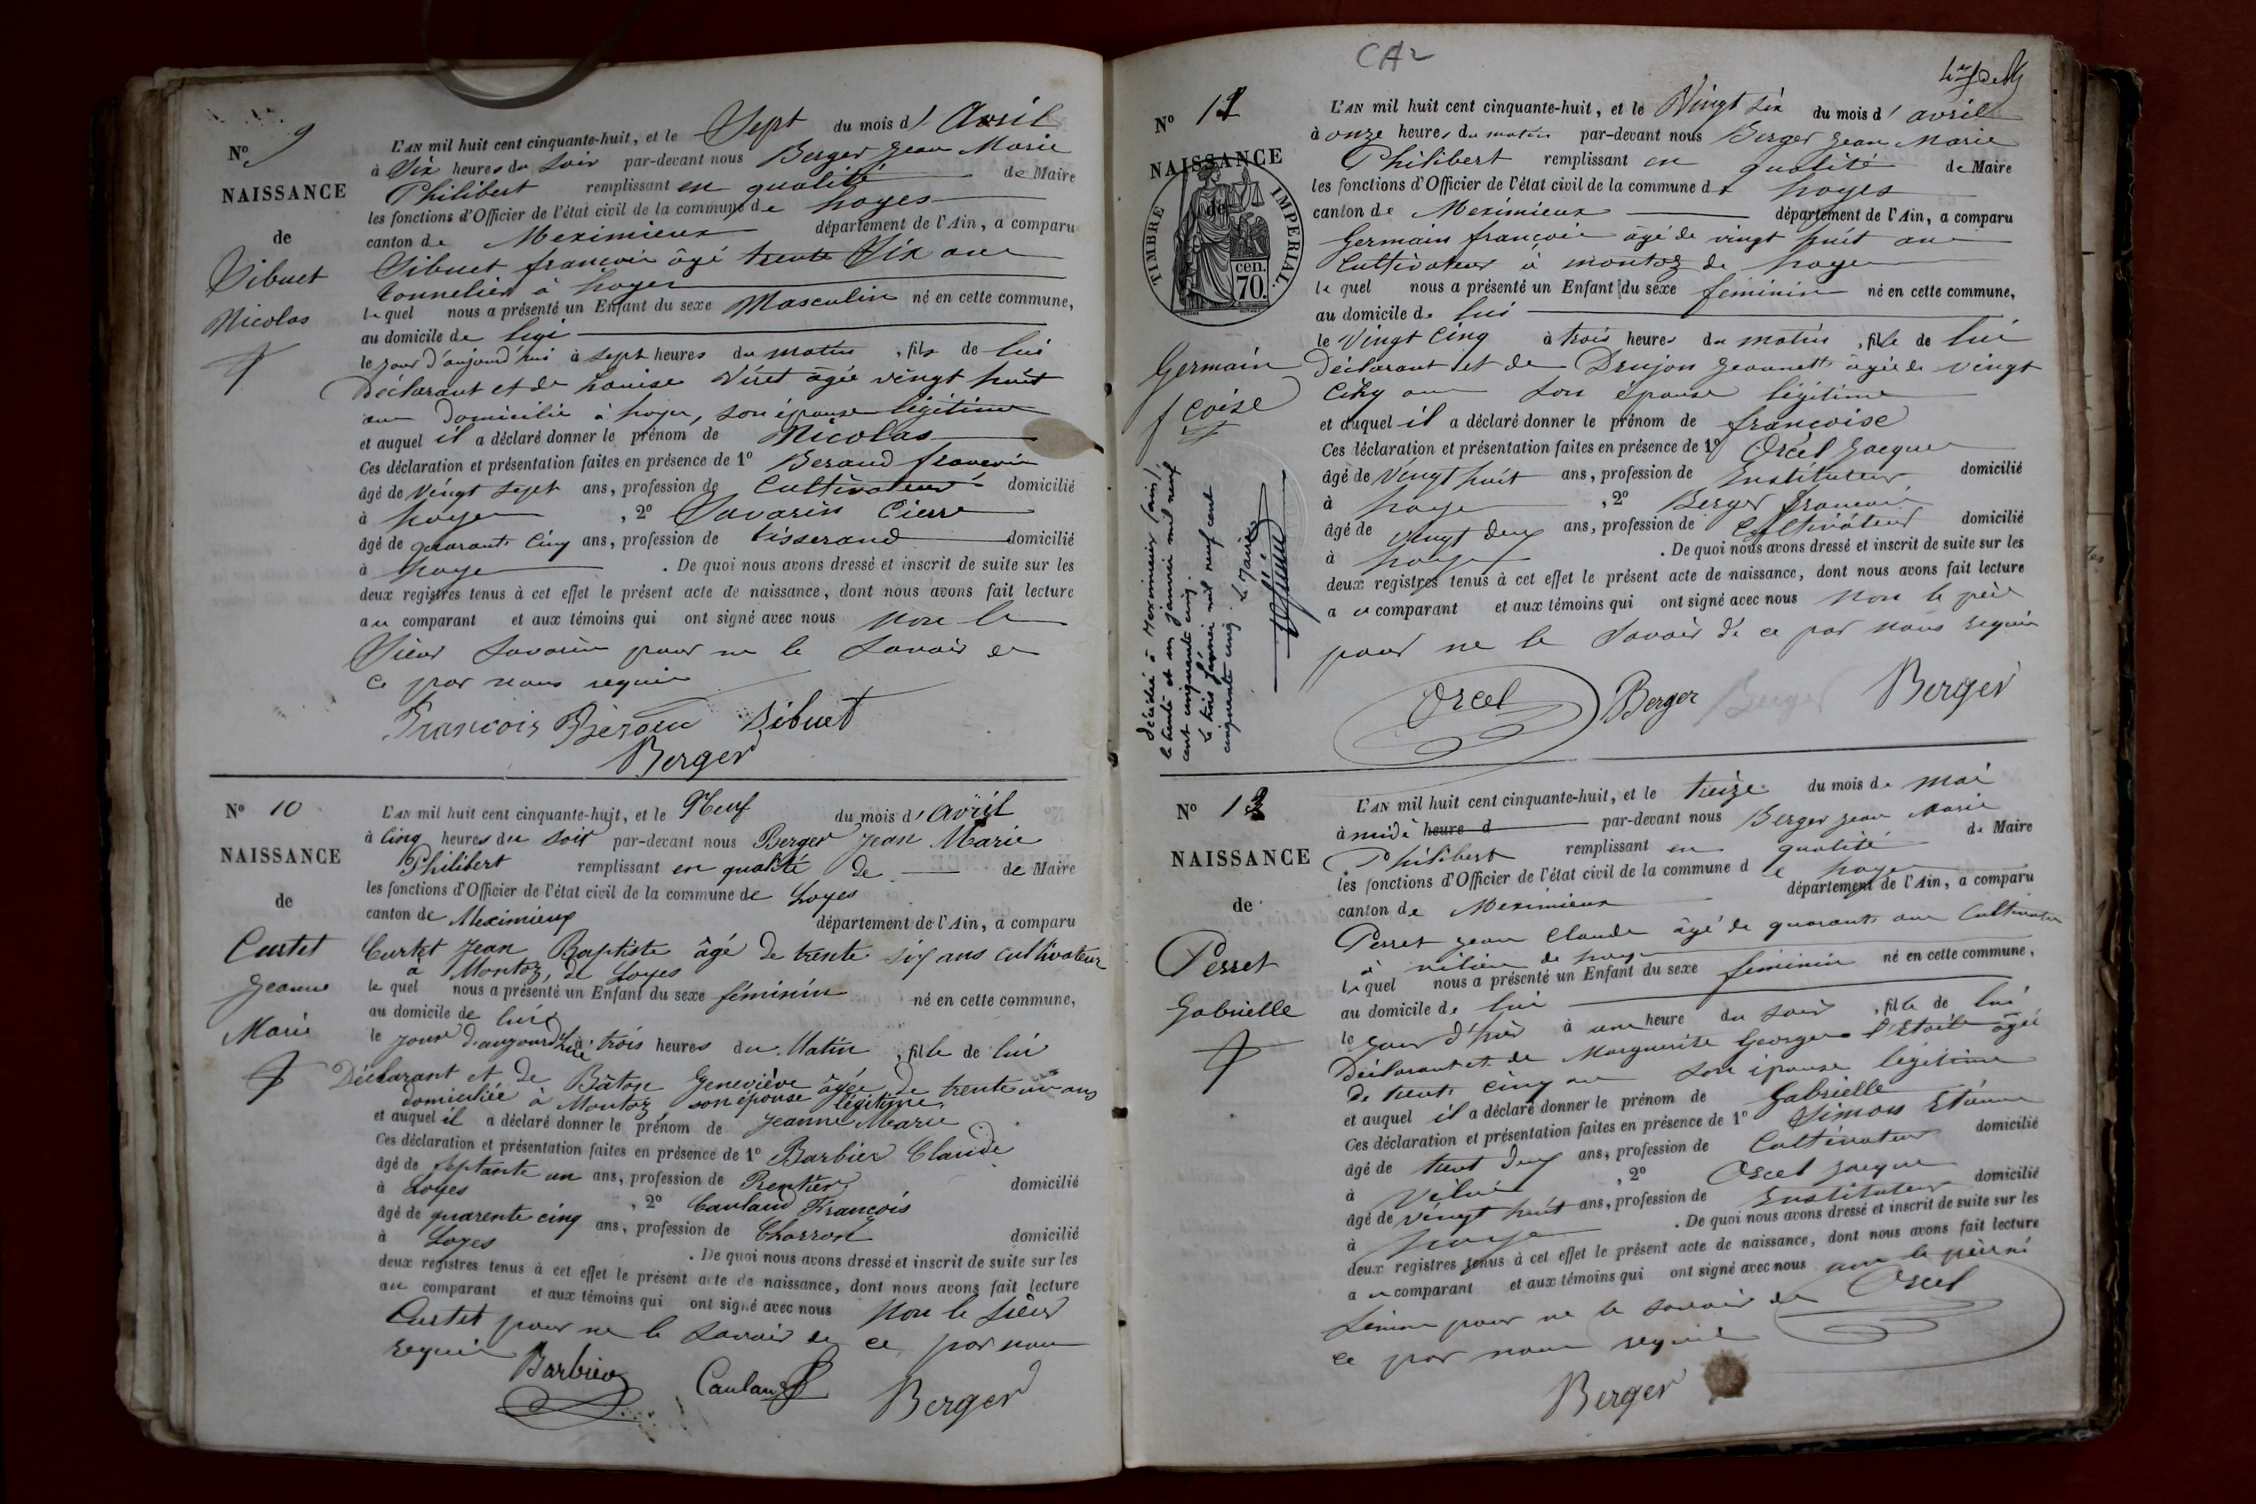 N° 9
NAISSANCE
de
Sibuet
Nicolas
L'AN mil huit cent cinquante-huit, et le Sept du mois d' Avril
à Six heures du Soir par-devant nous Berger Jean Marie
Philibert remplissant en qualité de Maire
les fonctions d'Officier de l'état civil de la commune de Loyes
canton de Meximieux département de l'Ain, a comparu
Sibuet françois âgé trente Six ans
tonnelier à Loyes
le quel nous a présenté un Enfant du sexe Masculin né en cette commune,
au domicile de lui
le jour d'aujourd'hui à sept heures du matin, fils de lui
Déclarant et de Louise âgée vingt huit
ans Domiciliée à Loyes, son épouse légitime
et auquel il a déclaré donner le prénom de Nicolas
Ces déclaration et présentation faites en présence de 1° Beraud françois
âgé de vingt sept ans, profession de Cultivateur domicilié
à Loyes, 2° Savarin Pierre
âgé de quarante cinq ans, profession de tisserand domicilié
à Loyes. De quoi nous avons dressé et inscrit de suite sur les
deux registres tenus à cet effet le présent acte de naissance, dont nous avons fait lecture
au comparant et aux témoins qui ont signé avec nous Non le
Sieur Savarin pour ne le Savoir de
ce par nous requis
François Sibuet
Berger
N° 10
NAISSANCE
de
Curtet
Jeanne
Marie
L'AN mil huit cent cinquante-huit, et le Neuf du mois d' Avril
à Cinq heures du Soir par-devant nous Berger Jean Marie
Philibert remplissant en qualité de de Maire
les fonctions d'Officier de l'état civil de la commune de Loyes
canton de Meximieux département de l'Ain, a comparu
Curtet Jean Baptiste âgé de trente six ans cultivateur
à Montoz, de Loyes
le quel nous a présenté un Enfant du sexe féminin né en cette commune,
au domicile de lui
le jour d'aujourd'hui à trois heures du Matin, fille de lui
Déclarant et de Geneviève âgée de trente ans
domiciliée à Montoz son épouse légitime
et auquel il a déclaré donner le prénom de Jeanne Marie
Ces déclaration et présentation faites en présence de 1° Barbier Claude
âgé de septante un ans, profession de Rentier domicilié
à Loyes, 2° Caulaud François
âgé de quarente cinq ans, profession de Charron domicilié
à Loyes. De quoi nous avons dressé et inscrit de suite sur les
deux registres tenus à cet effet le présent acte de naissance, dont nous avons fait lecture
au comparant et aux témoins qui ont signé avec nous Non le Sieur
Curtet pour ne le Savoir de ce par nous
requis
Barbier Caulaud Berger
CA2
N° 11
NAISSANCE
de
TIMBRE IMPERIAL.
70. cen.
Germain
fcoise
Décédée à Meximieux (ain)
le trente et un janvier mil neuf
cent cinquante cinq.
Le trois février mil neuf cent
cinquante cinq. Le Maire
L'AN mil huit cent cinquante-huit, et le Vingt Six du mois d' avril
à onze heures du matin par-devant nous Berger Jean Marie
Philibert remplissant en qualité de Maire
les fonctions d'Officier de l'état civil de la commune de Loyes
canton de Meximieux département de l'Ain, a comparu
Germain françois âgé de vingt huit ans
Cultivateur à montoz de Loyes
le quel nous a présenté un Enfant du sexe féminin né en cette commune,
au domicile de lui
le Vingt Cinq à trois heures du matin, fille de lui
Déclarant et de Drujon Jeannette âgée de vingt
Cinq ans son épouse légitime
et auquel il a déclaré donner le prénom de françoise
Ces déclaration et présentation faites en présence de 1° Orcel Jacques
âgé de vingt huit ans, profession de Instituteur domicilié
à Loyes, 2° Berger françois
âgé de vingt deux ans, profession de Cultivateur domicilié
à Loyes. De quoi nous avons dressé et inscrit de suite sur les
deux registres tenus à cet effet le présent acte de naissance, dont nous avons fait lecture
au comparant et aux témoins qui ont signé avec nous Non le père
pour ne le Savoir de ce par nous requis
Orcel Berger Berger Berger
N° 12
NAISSANCE
de
Perret
Gabrielle
L'AN mil huit cent cinquante-huit, et le treize du mois de mai
à midi heure d par-devant nous Berger Jean Marie
Philibert remplissant en qualité de Maire
les fonctions d'Officier de l'état civil de la commune de Loyes
canton de Meximieux département de l'Ain, a comparu
Perret Jean Claude âgé de quarante ans Cultivateur
à de Loyes
le quel nous a présenté un Enfant du sexe féminin né en cette commune,
au domicile de lui
le jour d'hier à une heure du soir, fille de lui
Déclarant et de Marguerite Georges âgée
de trente cinq ans son épouse légitime
et auquel il a déclaré donner le prénom de Gabrielle
Ces déclaration et présentation faites en présence de 1° Simon Etienne
âgé de trent deux ans, profession de Cultivateur domicilié
à, 2° Orcel Jacques
âgé de vingt huit ans, profession de Instituteur domicilié
à Loyes. De quoi nous avons dressé et inscrit de suite sur les
deux registres tenus à cet effet le présent acte de naissance, dont nous avons fait lecture
au comparant et aux témoins qui ont signé avec nous le père ni
Simon pour ne le savoir de
ce par nous requis
Orcel
Berger